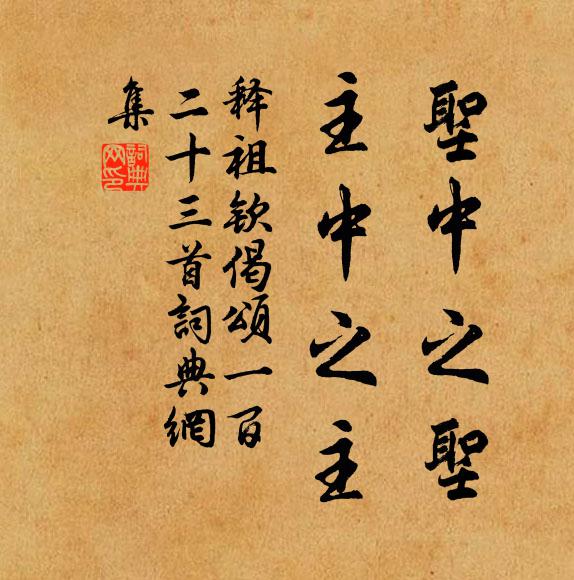 聖中之聖
主中之主
释祖欽偈頌一百
二十三首詞典網
集
詞典網印